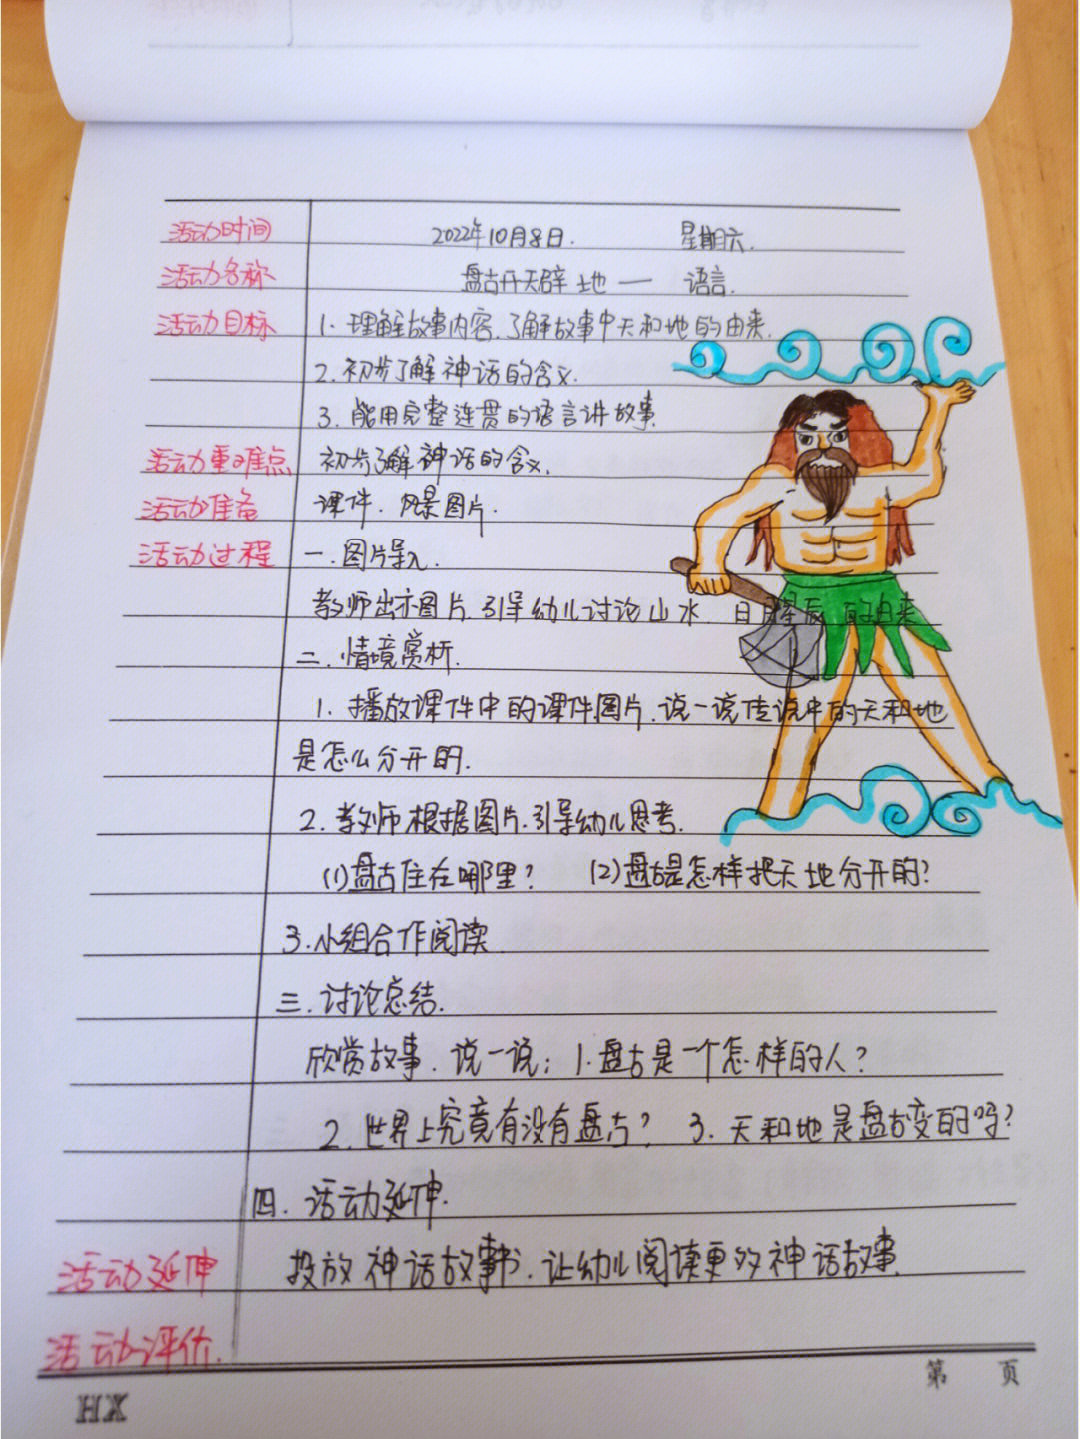 活动时间 2022年10月8日. 星期六.
活动名称 盘古开天辟地一 语言.
活动目标 1. 理解故事内容.了解故事中天和地的由来.
2.初步了解神话的含义.
3. 能用完整连贯的语言讲故事.
活动重难点 初步了解神话的含义.
活动准备 课件. 风景图片.
活动过程 一.图片导入.
教师出示图片.引导幼儿讨论山水. 日月星辰的由来
二.情境赏析.
1. 播放课件中的课件图片.说一说传说中的天和地
是怎么分开的.
2.教师根据图片.引导幼儿思考.
(1)盘古住在哪里? (2)盘古是怎样把天地分开的?
3.小组合作阅读.
三.讨论总结.
欣赏故事.说一说: 1.盘古是一个怎样的人?
2.世界上究竟有没有盘古? 3. 天和地是盘古变的吗?
四. 活动延伸.
活动延伸 投放神话故事书.让幼儿阅读更多神话故事.
活动评估.
第 页
HX